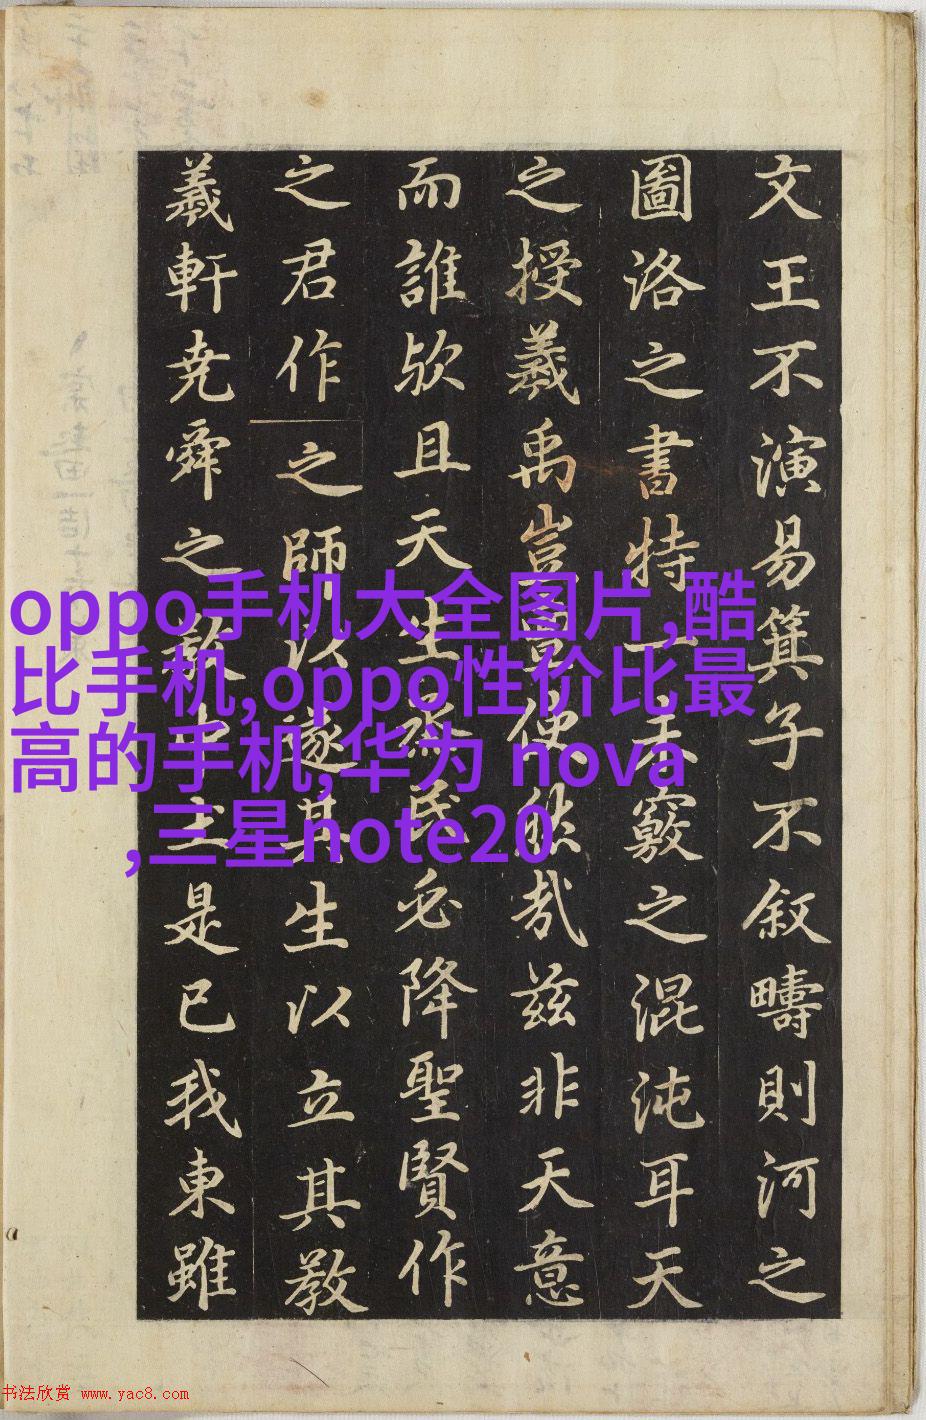 文王不演易箕子不叙疇則河之
圖洛之書特一未竅之混沌耳天
之授羲禹豈啻使然哉兹非天意
而誰欤且天生烝民必降聖賢作
之君作之師以遂其生以立其教
羲軒尭舜之敎中主是已我東雖
oppo手机大全图片,酷
比手机,oppo性价比最
高的手机,华为 nova
,三星note20
书法欣赏 www.yac8.com